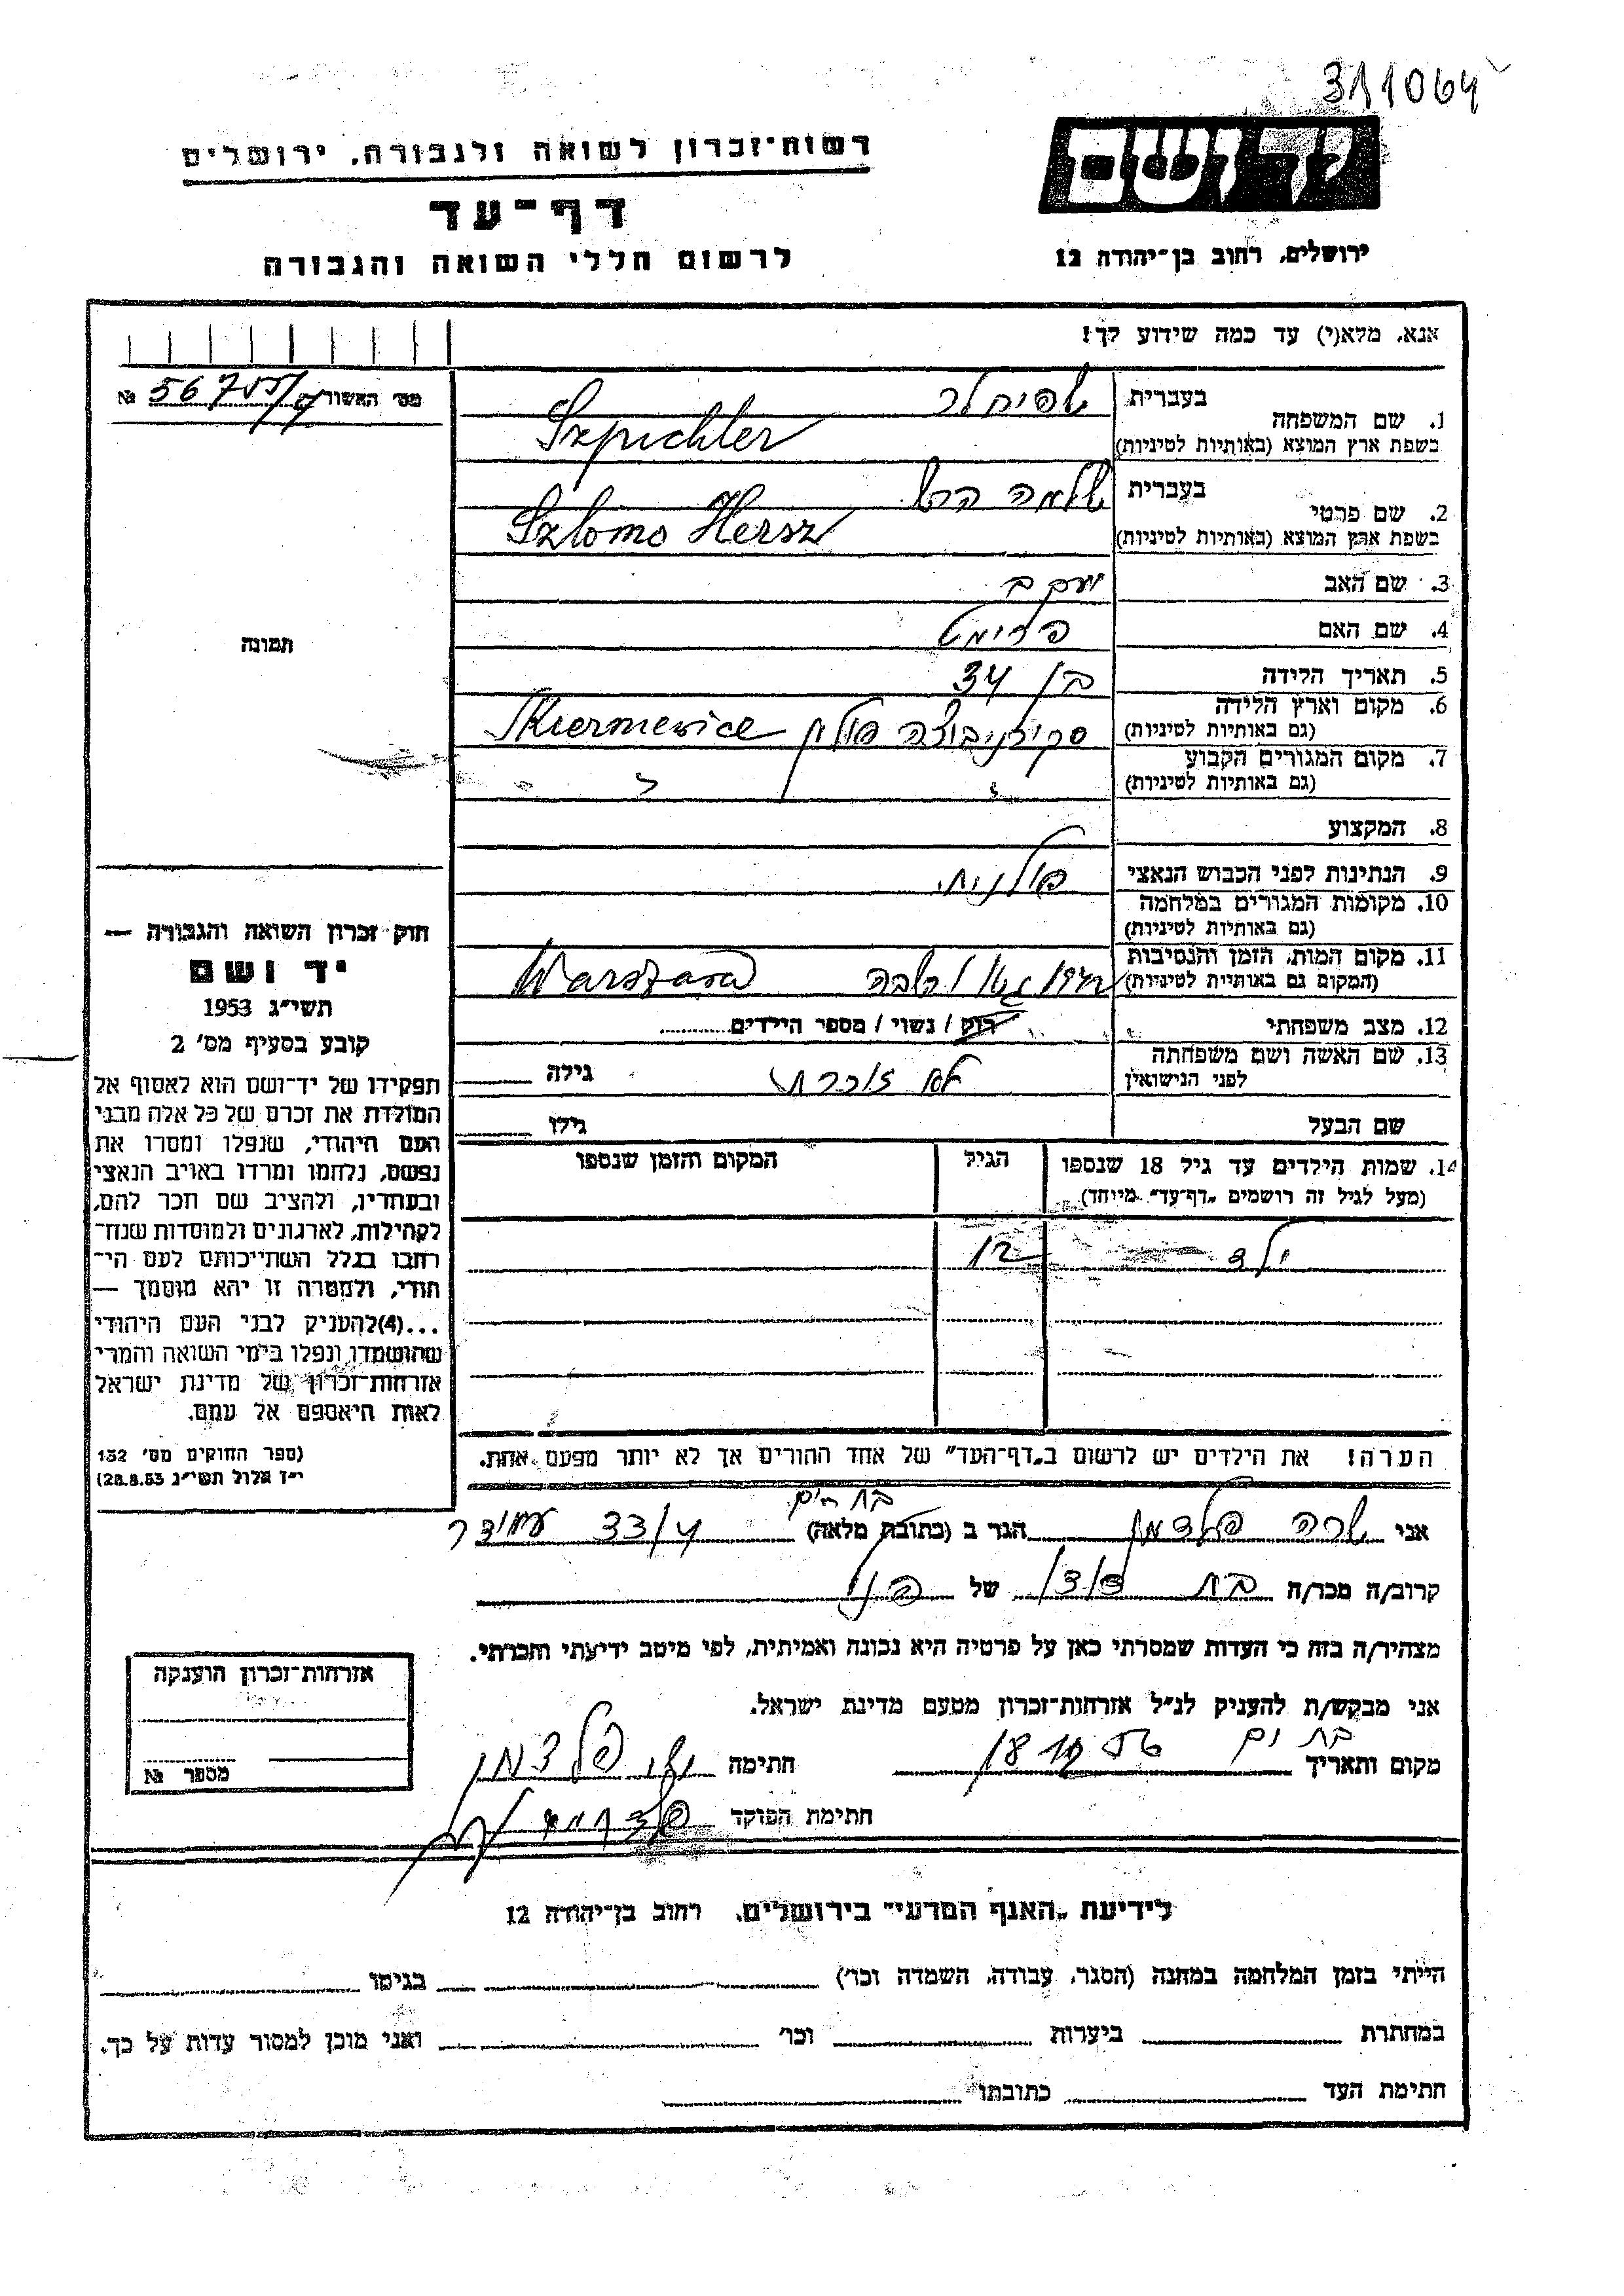 311064
יד ושם
רשות־זכרון לשואה ולגבורה, ירושלים
דף־עד
לרשום חללי השואה והגבורה
ירושלים, רחוב בן־יהודה 12
אנא, מלא(י) עד כמה שידוע לך!
מס' האשור № 56705/
1. שם המשפחה
בעברית שפיחלר
בשפת ארץ המוצא (באותיות לטיניות) Szpichler
2. שם פרטי
בעברית שלמה הרש
בשפת ארץ המוצא (באותיות לטיניות) Szlomo Hersz
3. שם האב יעקב
4. שם האם פרימט
5. תאריך הלידה בן 34
6. מקום וארץ הלידה
(גם באותיות לטיניות) סקירניביצה פולין Skierniewice
7. מקום המגורים הקבוע
(גם באותיות לטיניות)
8. המקצוע
9. הנתינות לפני הכבוש הנאצי פולנית
10. מקומות המגורים במלחמה
(גם באותיות לטיניות)
11. מקום המות, הזמן והנסיבות
(המקום גם באותיות לטיניות) גטו ורשבה Warszawa
12. מצב משפחתי רוק / נשוי / מספר הילדים
13. שם האשה ושם משפחתה
לפני הנישואין לא זוכרת גילה
שם הבעל גילו
14. שמות הילדים עד גיל 18 שנספו
(מעל לגיל זה רושמים „דף־עד” מיוחד)
הגיל
המקום והזמן שנספו
ילד
הערה! את הילדים יש לרשום ב„דף־העד” של אחד ההורים אך לא יותר מפעם אחת.
תמונה
חוק זכרון השואה והגבורה —
יד ושם
תשי״ג 1953
קובע בסעיף מס' 2
תפקידו של יד־ושם הוא לאסוף אל
המולדת את זכרם של כל אלה מבני
העם היהודי, שנפלו ומסרו את
נפשם, נלחמו ומרדו באויב הנאצי
ובעוזריו, ולהציב שם וזכר להם,
לקהילות, לארגונים ולמוסדות שנח־
רבו בגלל השתייכותם לעם הי־
הודי, ולמטרה זו יהא מוסמך —
...(4) להעניק לבני העם היהודי
שהושמדו ונפלו בימי השואה והמרי
אזרחות־זכרון של מדינת ישראל
לאות היאספם אל עמם.
(ספר החוקים מס' 132
י״ז אלול תשי״ג 28.8.53)
בת ים
אני שרה פלדמן הגר ב (כתובת מלאה) 33/4 עמידר
קרוב/ה מכר/ה בת דוד של
מצהיר/ה בזה כי העדות שמסרתי כאן על פרטיה היא נכונה ואמיתית, לפי מיטב ידיעתי והכרתי.
אני מבקש/ת להעניק לנ״ל אזרחות־זכרון מטעם מדינת ישראל.
מקום ותאריך בת ים 18 10 56 חתימה פלדמן
חתימת הפוקד
אזרחות־זכרון הוענקה
מספר №
לידיעת „האגף המדעי” בירושלים, רחוב בן־יהודה 12
הייתי בזמן המלחמה במחנה (הסגר, עבודה, השמדה וכו') בגיטו
במחתרת ביערות וכו' ואני מוכן למסור עדות על כך.
חתימת העד כתובתו